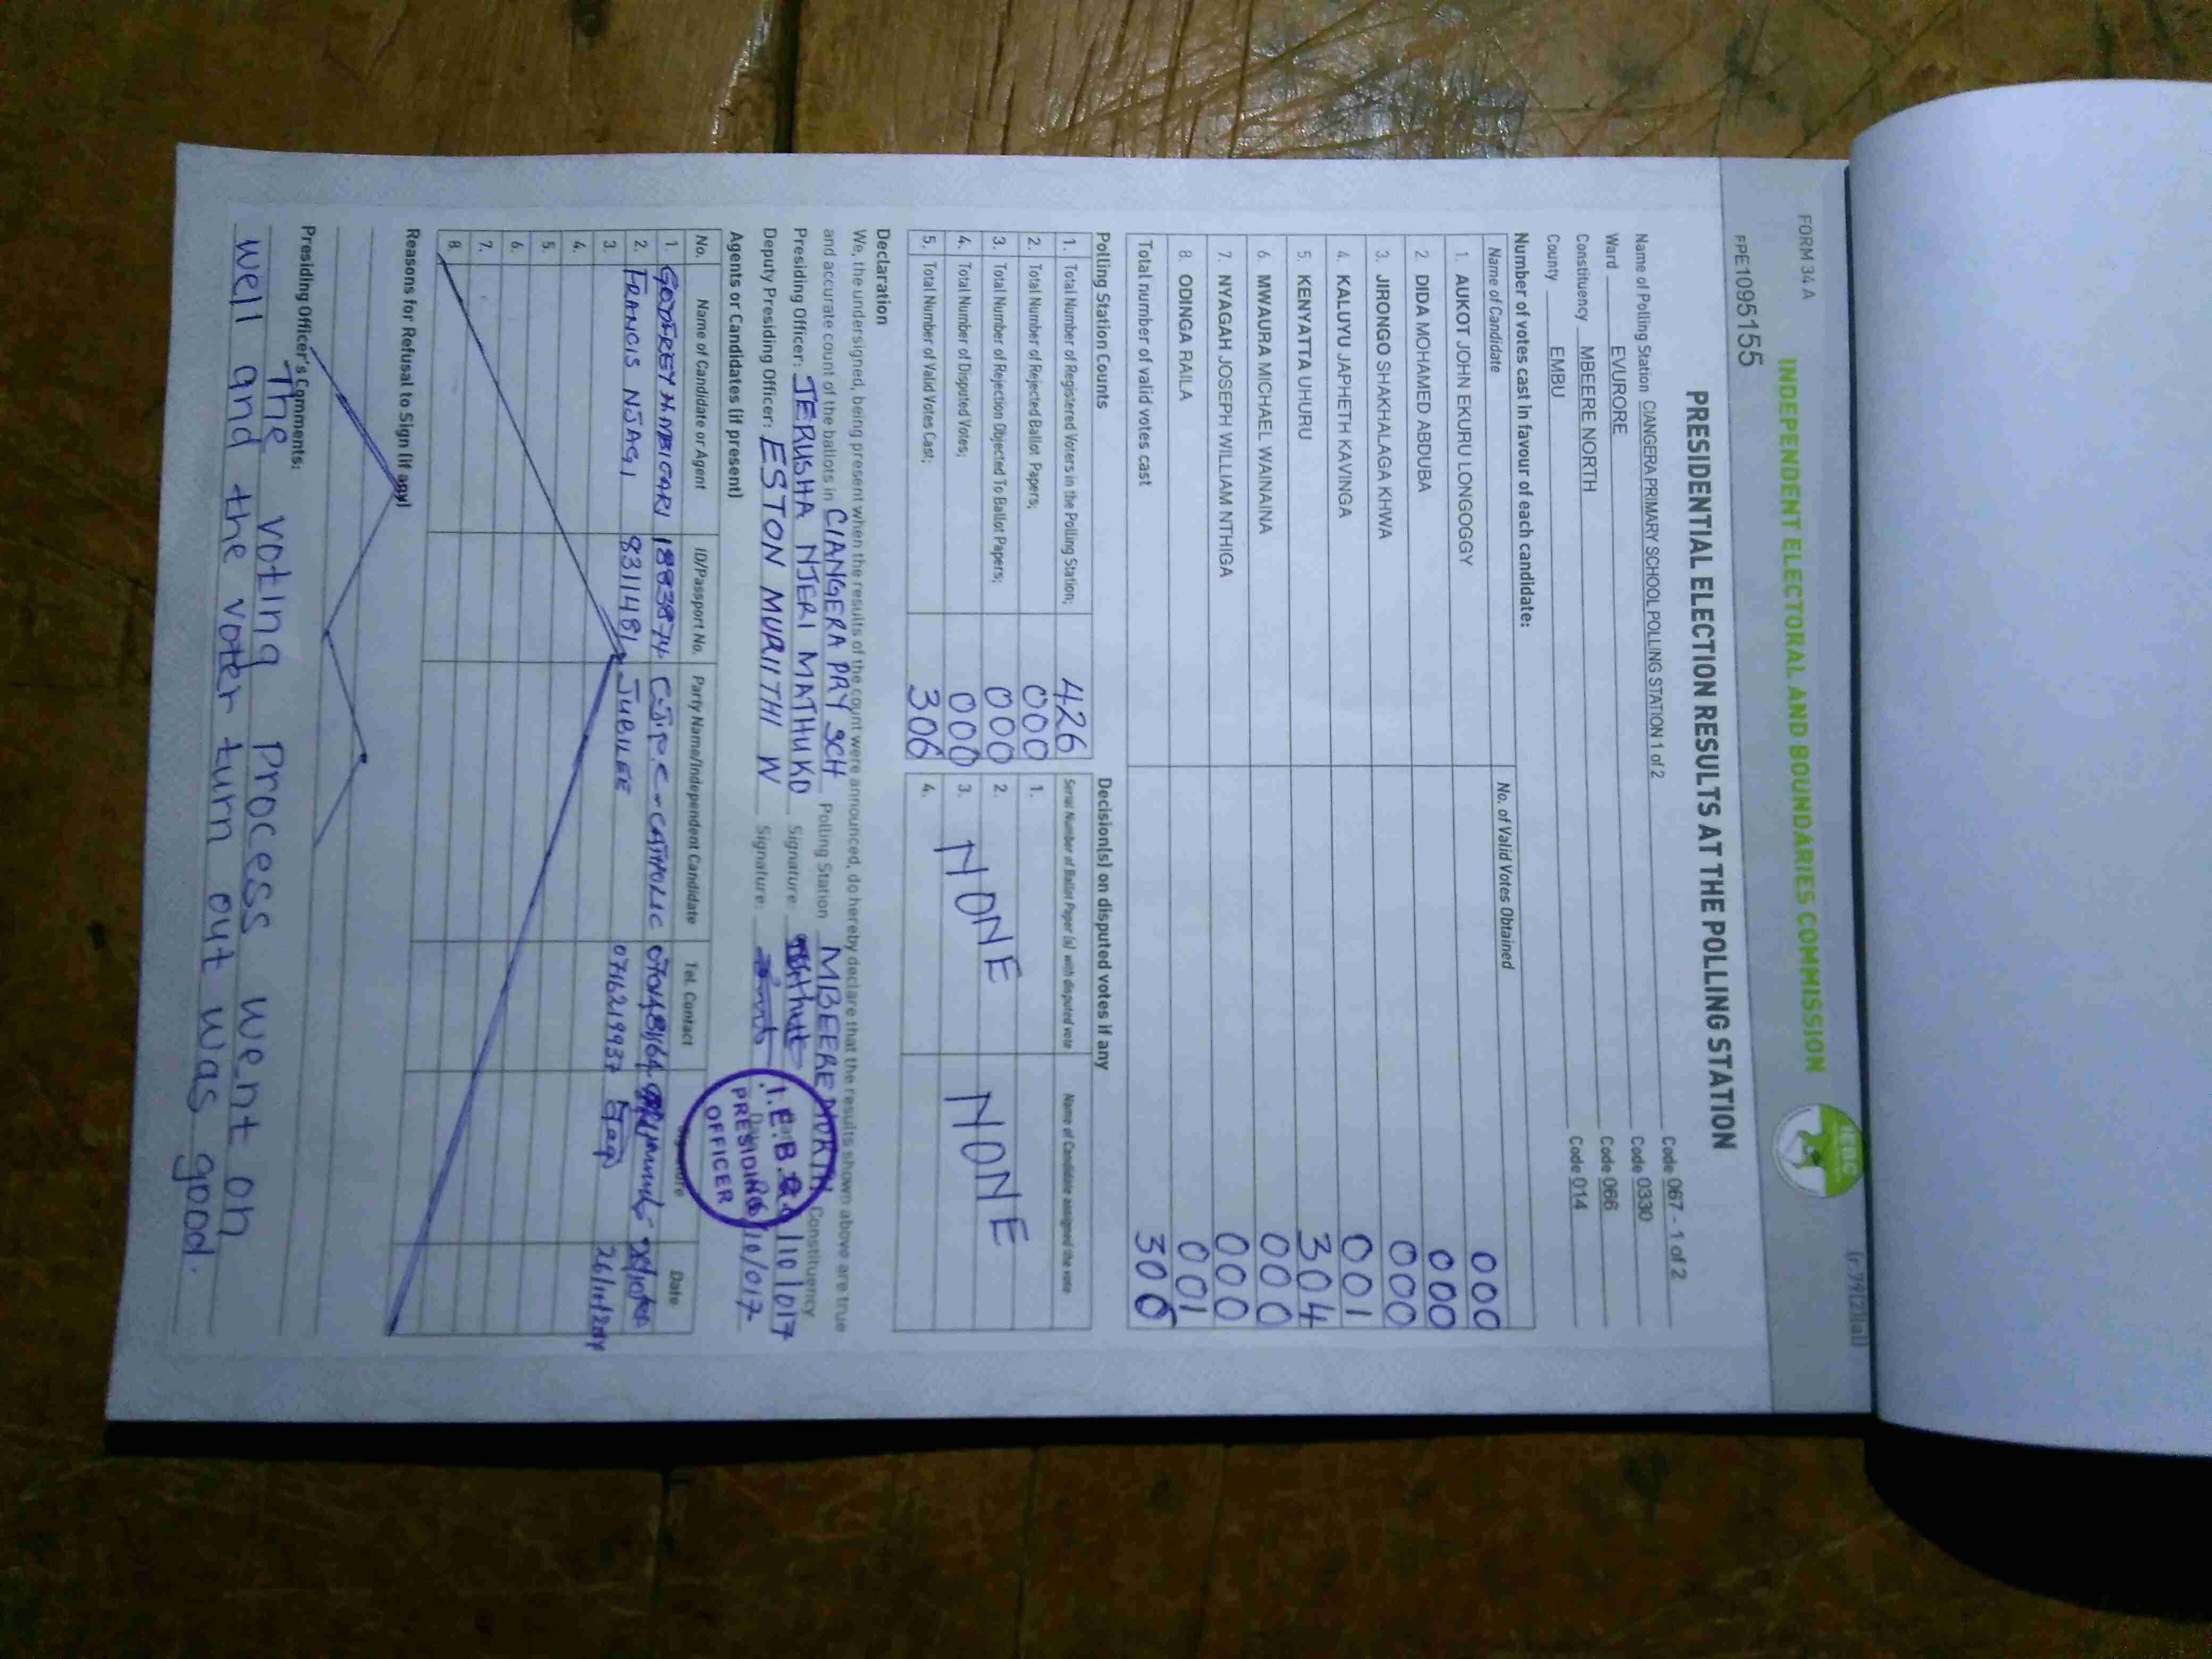 FORM 34 A
(r.79(2)(a))
INDEPENDENT ELECTORAL AND BOUNDARIES COMMISSION
IEBC
FPE1095155
PRESIDENTIAL ELECTION RESULTS AT THE POLLING STATION
Name of Polling Station CIANGERA PRIMARY SCHOOL POLLING STATION 1 of 2 Code 067 - 1 of 2
Ward EVURORE Code 0330
Constituency MBEERE NORTH Code 066
County EMBU Code 014
Number of votes cast in favour of each candidate:
Name of Candidate No. of Valid Votes Obtained
1. AUKOT JOHN EKURU LONGOGGY 000
2. DIDA MOHAMED ABDUBA 000
3. JIRONGO SHAKHALAGA KHWA 000
4. KALUYU JAPHETH KAVINGA 001
5. KENYATTA UHURU 304
6. MWAURA MICHAEL WAINAINA 000
7. NYAGAH JOSEPH WILLIAM NTHIGA 000
8. ODINGA RAILA 001
Total number of valid votes cast 306
Polling Station Counts
1. Total Number of Registered Voters in the Polling Station; 426
2. Total Number of Rejected Ballot Papers; 000
3. Total Number of Rejection Objected To Ballot Papers; 000
4. Total Number of Disputed Votes; 000
5. Total Number of Valid Votes Cast; 306
Decision(s) on disputed votes if any
Serial Number of Ballot Paper (s) with disputed vote Name of Candidate assigned the vote
1.
2.
3. NONE NONE
4.
Declaration
We, the undersigned, being present when the results of the count were announced, do hereby declare that the results shown above are true
and accurate count of the ballots in CIANGERA PRY SCH Polling Station MBEERE NORTH Constituency
Presiding Officer: JERUSHA NJERI MATHUKO Signature: /10/017
Deputy Presiding Officer: ESTON MURIITHI W Signature: /10/017
I.E.B.C.
PRESIDING
OFFICER
Agents or Candidates (if present)
No. Name of Candidate or Agent ID/Passport No. Party Name/Independent Candidate Tel. Contact Signature Date
1. GODFREY CATHOLIC
2. FRANCIS NJAGI 8311481 JUBILEE 0716219937
3.
4.
5.
6.
7.
8.
Reasons for Refusal to Sign (if any)
Presiding Officer's Comments:
The voting process went on
well and the voter turn out was good.